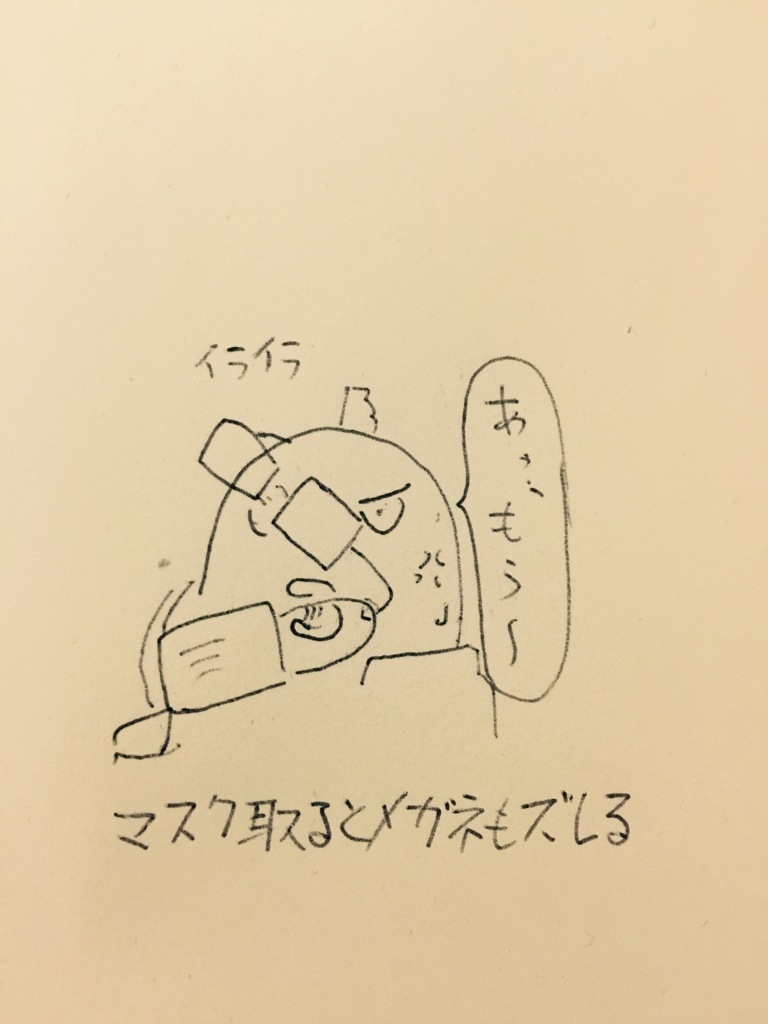 イライラ
あ〝もう〜
マスク取るとメガネもズレる